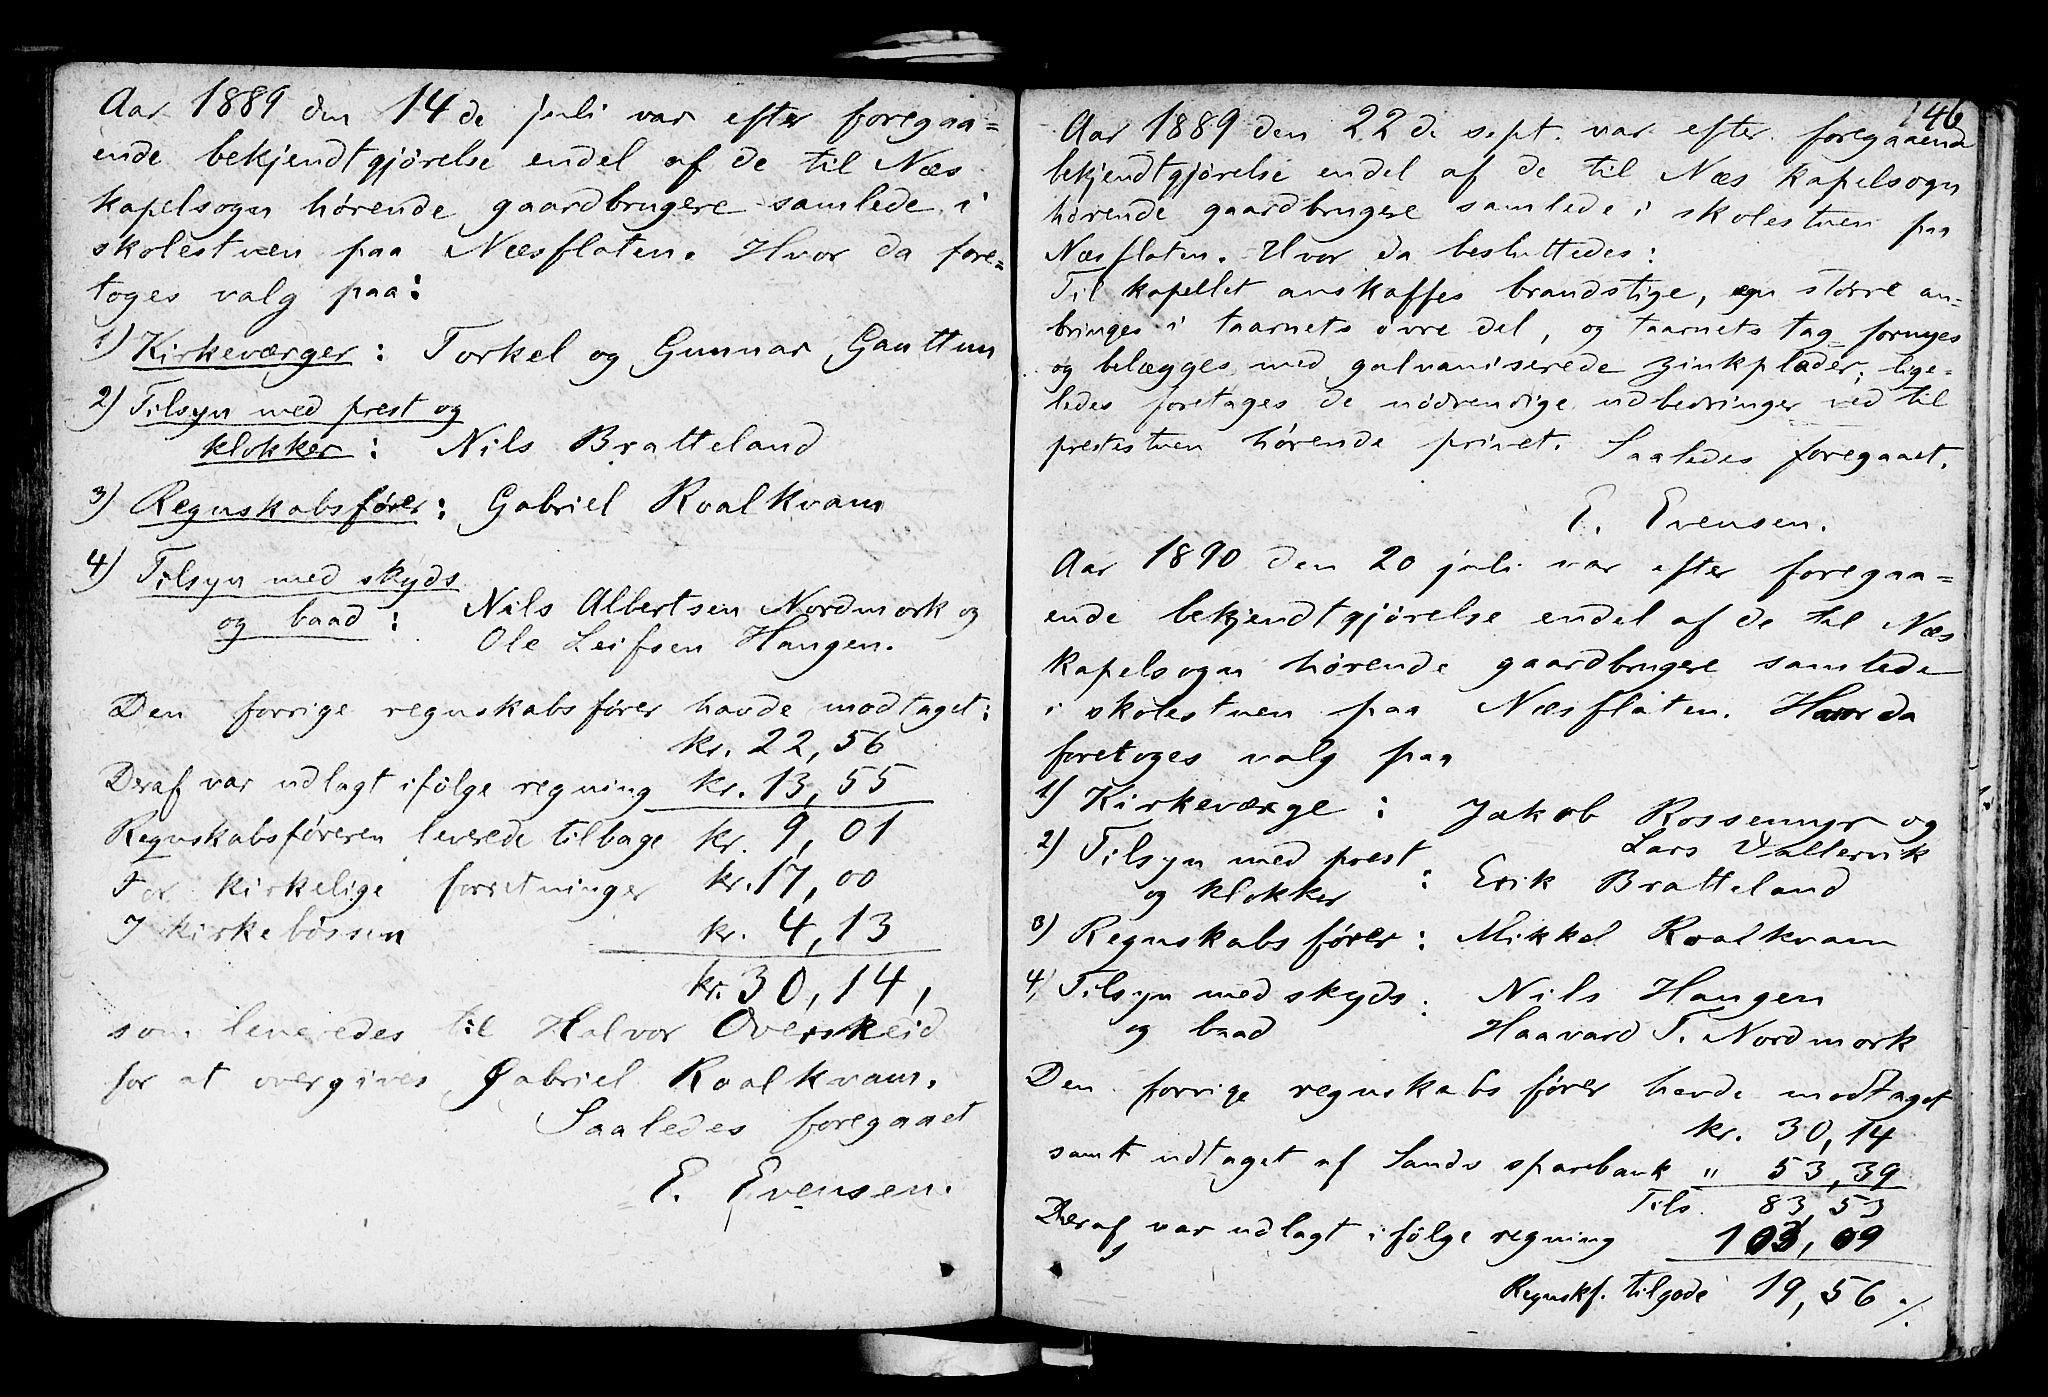 Aar 1889 den 14de juli var efter foregaa=
ende bekjendtgjørelse endel af de til Næs
kapelsogn hørende gaardbrugere samlede i
skolestuen paa Næsflaten. Hvor da fore=
toges valg paa:
1) Kirkeværger: Torkel og Gunnar Gauttun
2) Tilsyn med prest og
klokker: Nils Bratteland
3) Regnskabsfører: Gabriel Roalkvam
4) Tilsyn med skyds
og baad: Nils Albertsen Nordmork og
Ole Leifsen Haugen.
Den forrige regnskabsfører havde modtaget:
kr. 22,56
Deraf var udlagt ifølge regning kr. 13,55
Regnskabsføreren leverede tilbage kr. 9,01
For kirkelige forretninger kr. 17,00
I kirkebøssen kr. 4,13
kr. 30,14,
som leveredes til Halvor Øverskeid
for at overgives Gabriel Roalkvam.
Saaledes foregaaet
E. Evensen.
146
Aar 1889 den 22de sept. var efter foregaaende
bekjendtgjørelse endel af de til Næs kapelsogn
hørende gaardbrugere samlede i skolestuen paa
Næsflaten. Hvor da besluttedes:
Til kapellet anskaffes brandstige, en større an=
bringes i taarnets øvre del, og taarnets tag fornyes
og belægges med galvaniserede zinkplader; lige=
ledes foretages de nødvendige udbedringer ved til
prestestuen hørende privet. Saaledes foregaaet.
E. Evensen.
Aar 1890 den 20 juli var efter foregaa=
ende bekjendtgjørelse endel af de til Næs
kapelsogn hørende gaardbrugere samlede
i skolestuen paa Næsflaten. Hvor da
foretoges valg paa
1) Kirkeværge: Jakob Rossemyr og
Lars Vallervik
2) Tilsyn med prest
og klokker: Erik Bratteland
3) Regnskabsfører: Mikkel Roalkvam
4, Tilsyn med skyds: Nils Haugen
og baad Haavard T. Nordmork
Den forrige regnskabsfører havde modtaget
kr. 30,14
samt udtaget af Sands sparebank " 53,39
Tils. 83,53
Deraf var udlagt ifølge regning 103,09
Regnskf. tilgode 19,56 ./.